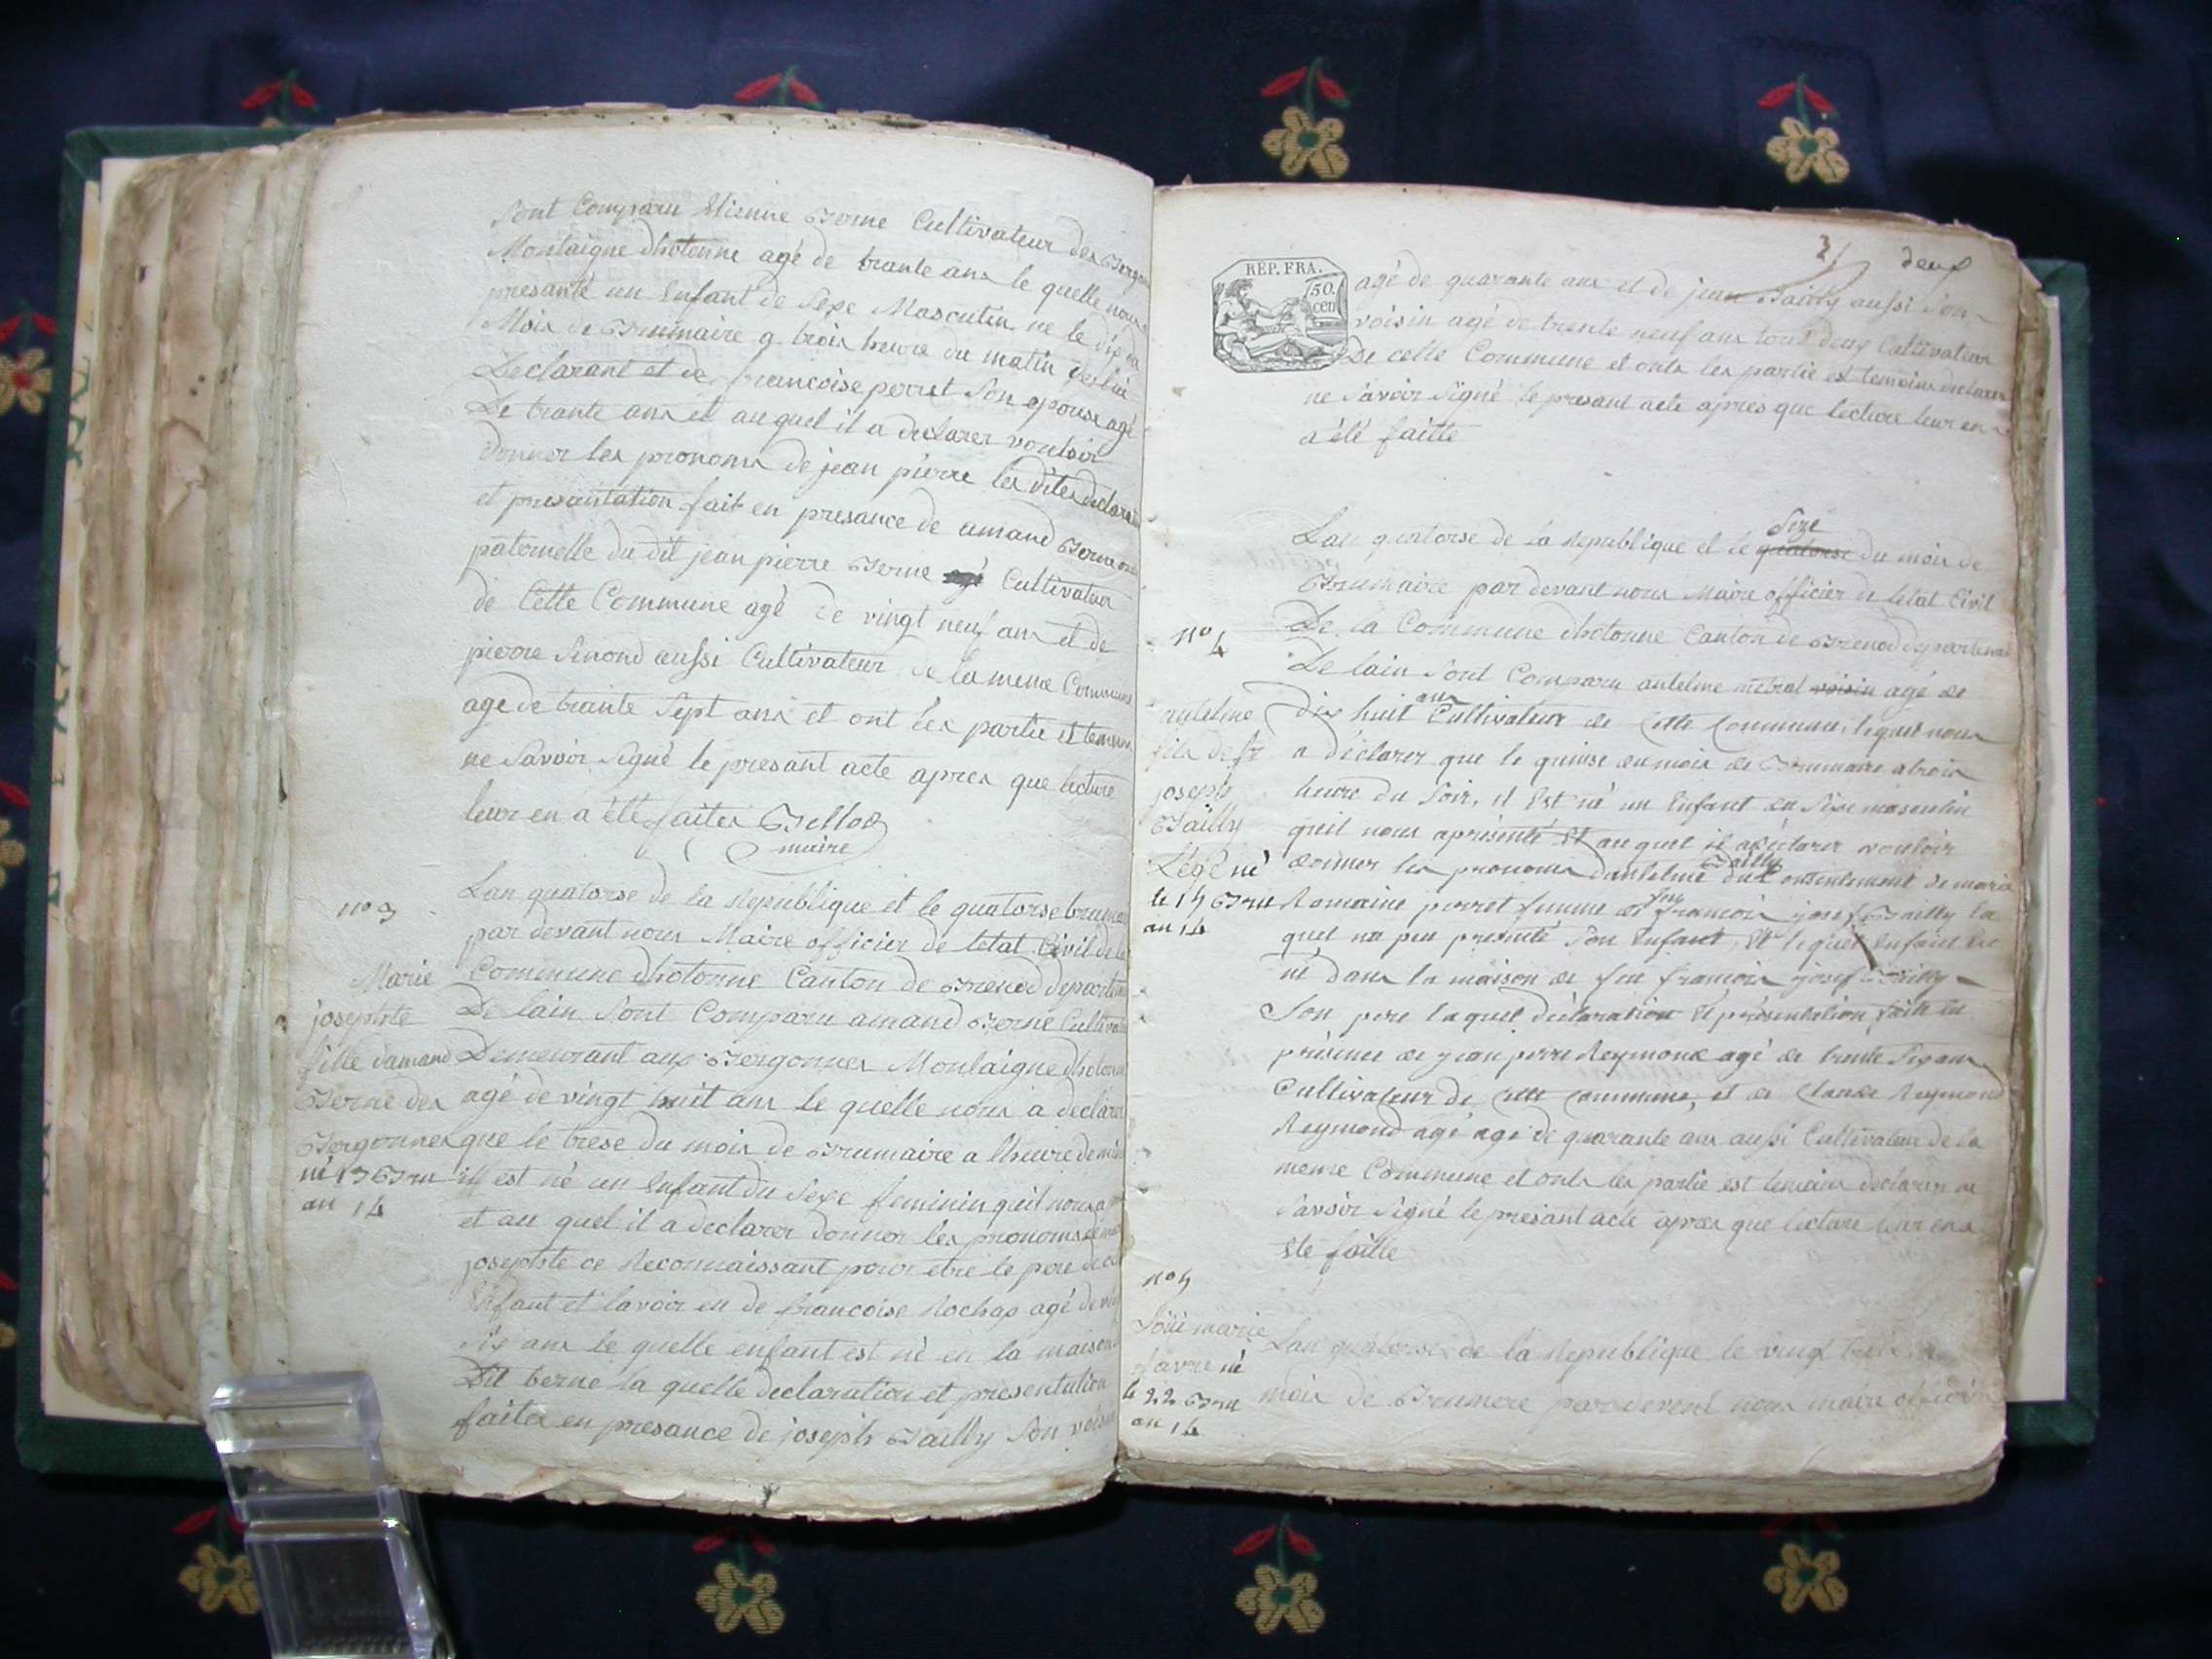 Sont Comparu Etienne Berne Cultivateur des
Montaigne dhotonne agé de trante ans le quelle nous
presanté un Enfant de Sexe Masculin ne le dix
Mois de Brumaire a trois heure du matin
Declarant et de francoise perret Son epouse agé
De trante ans et au quel il a declarer vouloir
Donner les pronoms de jean pierre les dites
et presantation fait en presance de amand Berne
paternelle du dit jean pierre Berne Cultivateur
de Cette Commune agé de vingt neuf ans et de
pierre Sinond aussi Cultivateur de la meme Commune
age de trante Sept ans et ont les partie et temoin
ne Savoir Signé le presant acte apres que lecture
leur en a été faites
maire
no 3
Lan quatorse de la Republique et le quatorse
par devant nous Maire officier de letat Civil de
Marie
Commune dhotonne Canton de Brenod
josephte
De lain Sont Comparu amand Berne
fille damand
Demeurant aux Bergonnes Montaigne
Berne des
agé de vingt huit ans le quelle nous a
Bergonnes
que le trese du mois de Brumaire a lheure de
né 13 Bru
ill est né un Enfant du Sexe feminin quil nous a
an 14
et au quel il a declarer donner les pronoms
josephte ce Reconnaissant pour etre le pere de
Enfant et lavoir eu de francoise Rochas agé de
Six ans le quelle enfant est né en la maison
Dit berne la quelle declaration et presentation
faites en presance de joseph Bailly Son
2 deux
REP. FRA.
50.
cen
agé de quarante ans et de jean Bailly aussi Son
voisin agé de trente neuf ans tout deux Cultivateur
De celle Commune et onts les partie est temoins
ne Savoir Signé le presant acte apres que lecture leur en
a été faitte
Sëze
Lan quatorse de la Republique et le quatorse du mois de
Brumaire par devant nous Maire officier de letat Civil
no 4
De la Commune dhotonne Canton de Brenod
De lain Sont Comparu antelme metral voisin agé de
antelme
dix huit ans Cultivateur de Cette Commune, lequel nous
fils de fr
a déclarer que le quinse du mois de Brumaire a trois
joseph
heure du Soir, il Est né un Enfant du Sexe masculin
Bailly
quil nous a présenté Et au quel il a déclarer vouloir
Bailly
né
donner les pronoms dantelme du Consentement de marie
feu
le 15 Bru
Romaine perret femme de francois josef Bailly la
an 14
quel na peu presenté Son Enfant, Et lequel Enfant Est
né dans la maison de feu francois josef Bailly
Son pere laquel déclaration Et présentation faite en
présence de jean pierre Reymond agé de trente Six ans
Cultivateur de Cette Commune, et de Claude Reymond
Reymond agé agé de quarante ans aussi Cultivateur de la
meme Commune et onts les partie est temoins declarer ne
Savoir Signé le presant acte apres que lecture leur en a
Eté faitte
no 5
marie
favre né
Lan quatorse de la Republique le vingt
le 22 Bru
mois de par devent nous maire
an 14